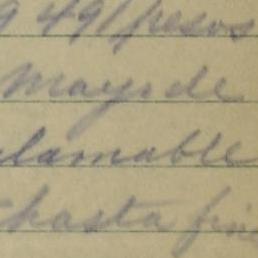 949/pesos
Mayo de
clamable
hasta fin